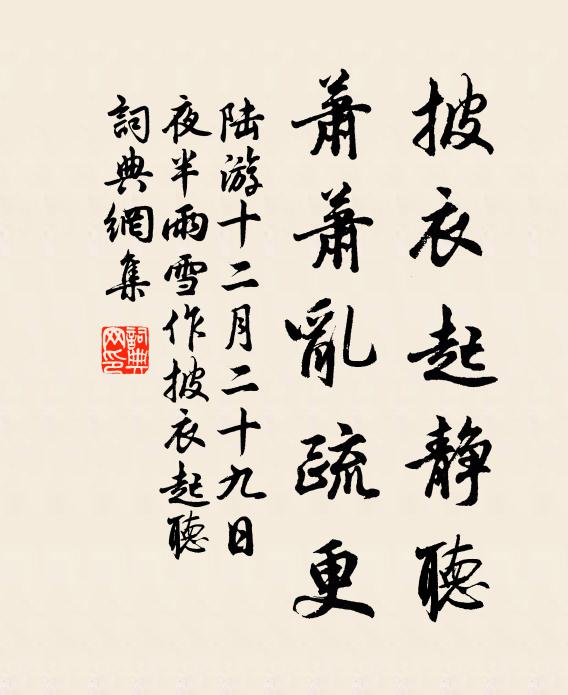 披衣起静聽
蕭蕭亂疏更
陆游十二月二十九日
夜半雨雪作披衣起聽
詞典網集
詞典
网印